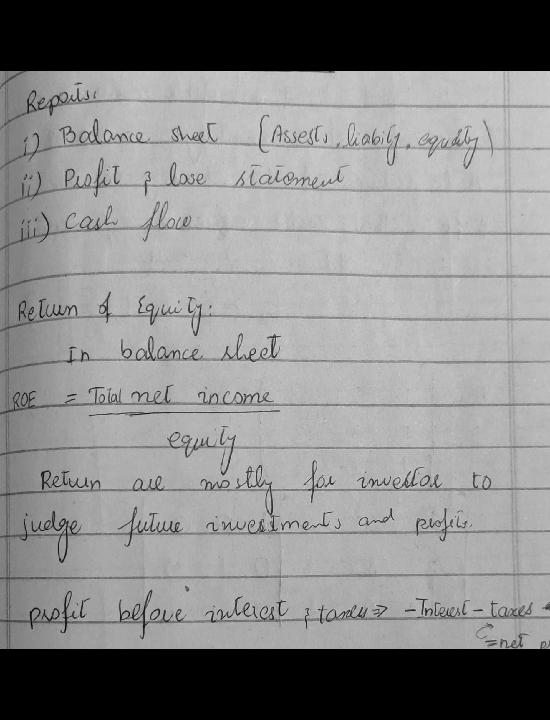 Reports:
i) Balance sheet (Assests, liabity, equity)
ii) Profit & lose statement
iii) Cash flow
Return of Equity:
In balance sheet
ROE = Total net income
equity
Return are mostly for investor to
judge future investments and profits.
profit before interest & taxes => -Interest - taxes
= net